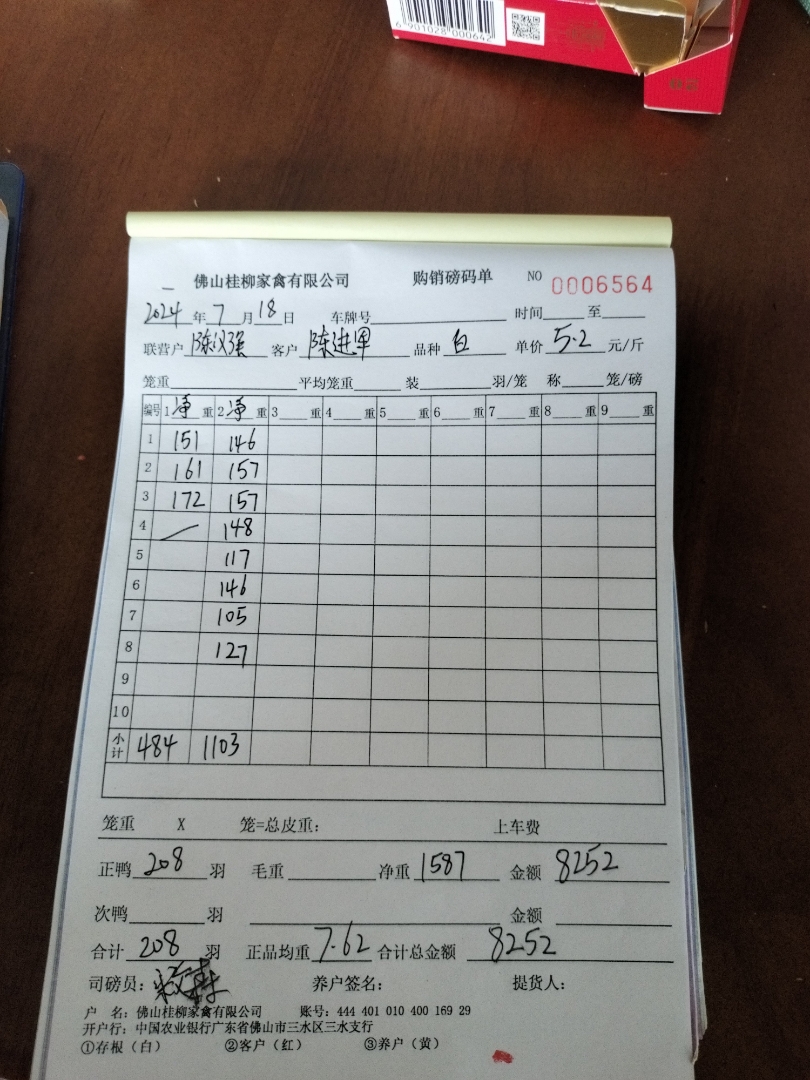 6 901028 000642
佛山桂柳家禽有限公司 购销磅码单 NO 0006564
2024年7月18日 车牌号 时间 至
联营户 陈汉强 客户 陈进军 品种 白 单价 5.2 元/斤
笼重 平均笼重 装 羽/笼 称 笼/磅
编号 1净重 2净重 3 重 4 重 5 重 6 重 7 重 8 重 9 重
1 151 146
2 161 157
3 172 157
4 148
5 117
6 146
7 105
8 127
9
10
小计 484 1103
笼重 X 笼=总皮重: 上车费
正鸭 208 羽 毛重 净重 1587 金额 8252
次鸭 羽 金额
合计 208 羽 正品均重 7.62 合计总金额 8252
司磅员: 养户签名: 提货人:
户 名: 佛山桂柳家禽有限公司 账号: 444 401 010 400 169 29
开户行: 中国农业银行广东省佛山市三水区三水支行
①存根（白） ②客户（红） ③养户（黄）